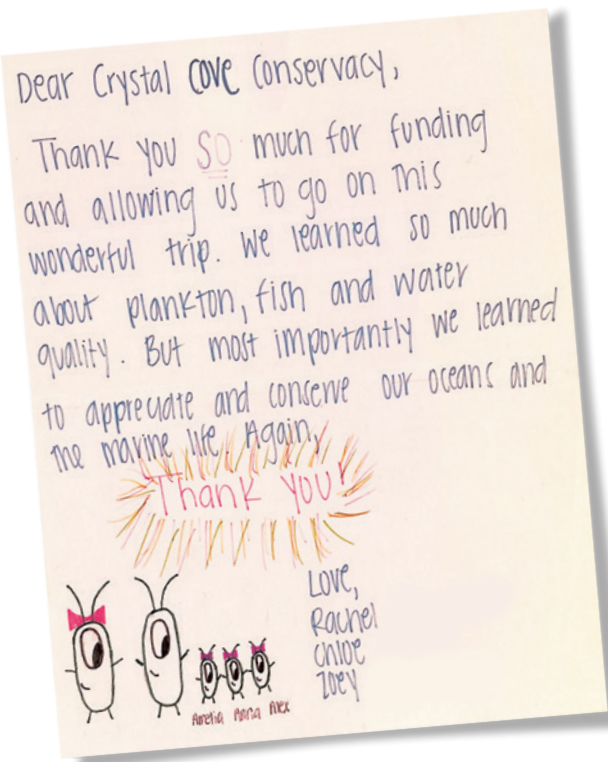 Dear Crystal COVE Conservacy,
Thank you SO much for funding
and allowing us to go on this
wonderful trip. We learned so much
about plankton, fish and water
quality. But most importantly we learned
to appreciate and conserve our oceans and
the marine life. Again,
Thank you!
Love,
Rachel
Chloe
Zoey
Amelia Anna Alex